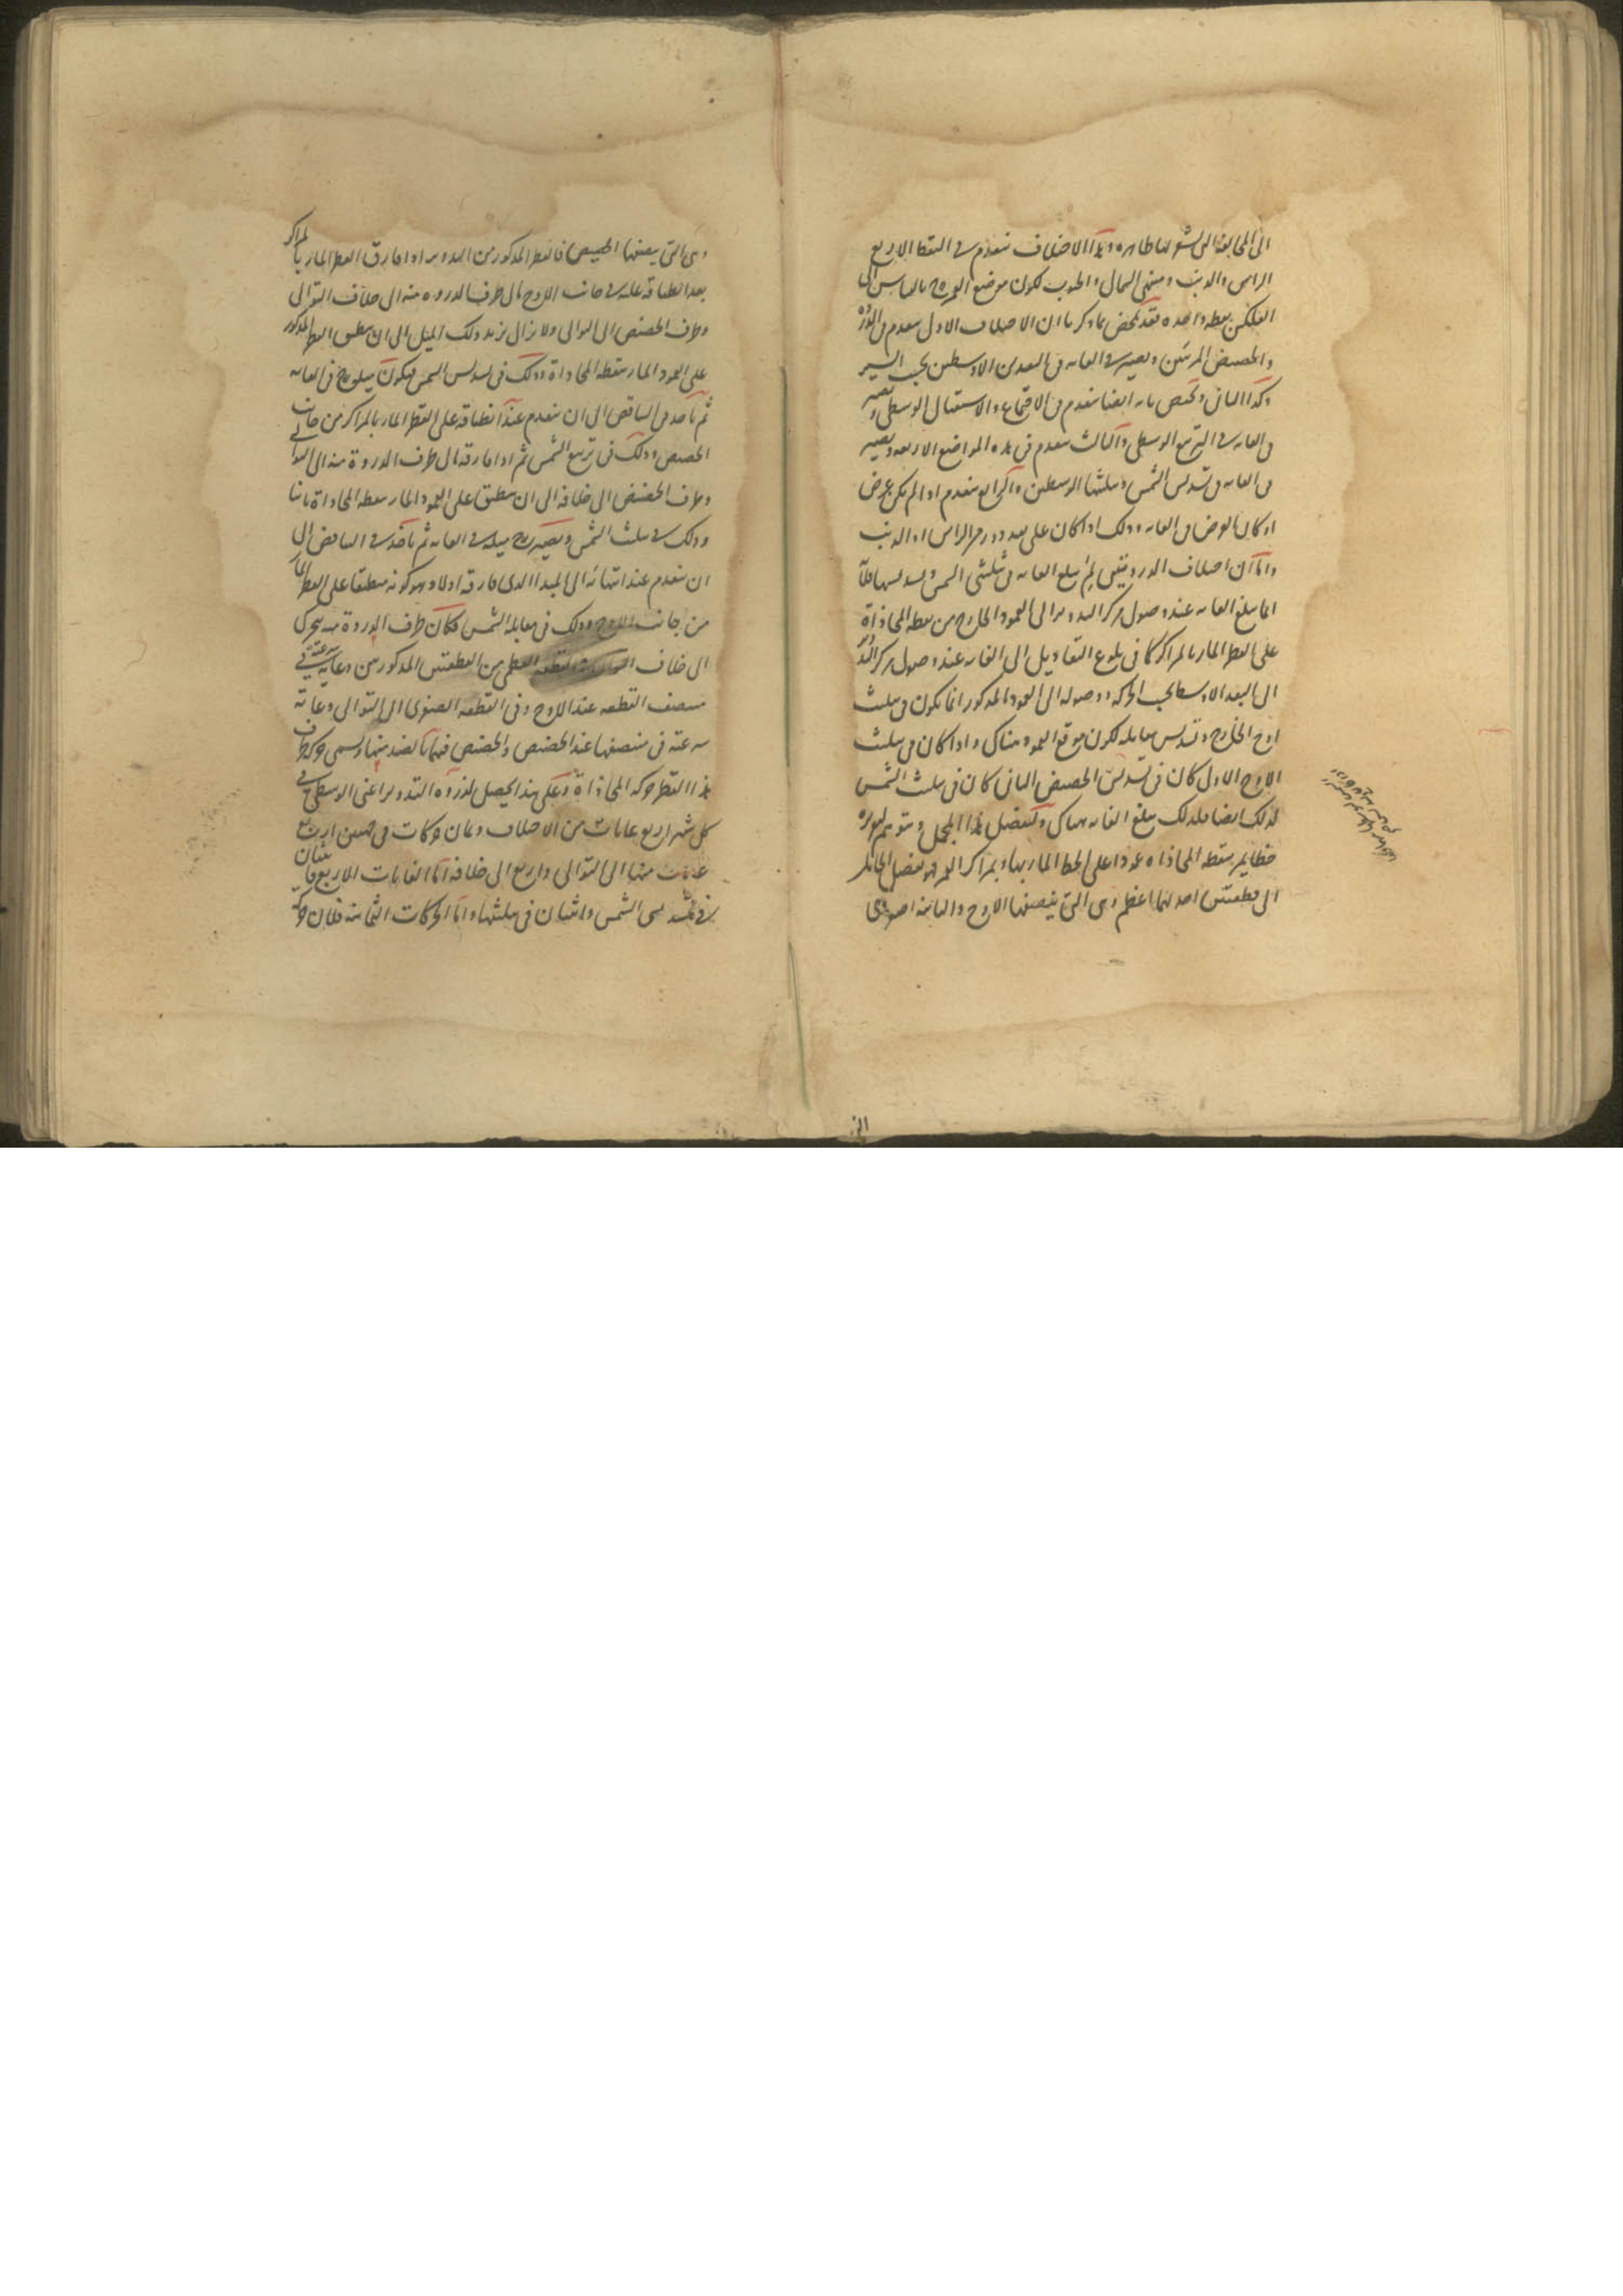 الى المخالفة التى نشير اليها ظاهره وهذا الاختلاف ينعدم فى النقط الاربع
الراس والذنب ومنتهى الشمال والجنوب لكون موضع القمر ح بالقياس الى
الفلكين نقطه واحده فقد تلخص مما ذكرنا ان الاختلاف الاول ينعدم فى الذروة
والحضيض المرئيين ويصير فى الغايه فى البعدين الاوسطين بحسب السير
وكذا الثانى ويختص بانه ايضا ينعدم فى الاجتماع والاستقبال الوسطى ويصير
فى الغايه فى التربيع الوسطى والثالث ينعدم فى هذه المواضع الاربعه ويصير
فى الغايه فى تسديس الشمس وتثليثها الوسطين والرابع ينعدم اذا لم يكن عرض
او كان العرض فى الغايه وذلك اذا كان على بعد دور من الراس او الذنب
واما ان اختلاف الذروتين لم يبلغ الغايه فى تثليثى الشمس وتسديسها فلان
انما يبلغ الغايه عند وصول مركز التدوير الى العمود الخارج من نقطه المحاذاة
على القطر المار بالمراكز كما فى بلوغ التعاديل الى الغايه عند وصول مركز التد
الى البعد الاوسط بحسب الحركه ووصوله الى العمود المذكور انما يكون فى تثليث
اوج الخارج وتسديس مقابله لكون موقع العمود هناك واذا كان فى تثليث
الاوج الاول كان فى تسديس الحضيض الثانى كان فى تثليث الشمس
كذلك ايضا فلذلك يبلغ الغايه هناك ولتفصيل هذا المجمل نتوهم
خطا يمر بنقطه المحاذاه عمودا على الخط المار بها وبمراكز القمر فهو يفصل الحامل
الى قطعتين احديهما اعظم وهى التى ينصفها الاوج والثانيه اصغر
وهى التى ينصفها الحضيض فالقطر المذكور من التدوير اذا فارق القطر المار بالمراكز
بعد انطباقه عليه فى جانب الاوج مال طرف الذروه منه الى خلاف التوالى
وطرف الحضيض الى التوالى ولا يزال يزيد ذلك الميل الى ان ينطبق القطر المذكور
على العمود المار بنقطه المحاذاة وذلك فى تسديس الشمس فيكون ميله ح فى الغايه
ثم ياخذ فى التناقص الى ان ينعدم عند انطباقه على القطر المار بالمراكز من جانب
الحضيض وذلك فى تربيع الشمس ثم اذا فارقه مال طرف الذروة منه الى التوالى
وطرف الحضيض الى خلافه الى ان ينطبق على العمود المار بنقطه المحاذاة ثانيا
وذلك فى تثليث الشمس ويصير ح ميله فى الغايه ثم ياخذ فى التناقص الى
ان ينعدم عند انتهائه الى المبدا الذى فارقه اولا وهو كونه منطبقا على القطر المار
من جانب الاوج وذلك فى مقابله الشمس فكان طرف الذروة منه يتحرك
الى خلاف التوالى فى القطعه العظمى من القطعتين المذكورتين وغايه سرعته فى
منتصف القطعه عند الاوج وفى القطعه الصغرى الى التوالى وغايه
سرعته فى منتصفها عند الحضيض والحضيض فيهما بالضد منها ويسمى حركه طرف
هذا القطر حركه المحاذاة وعلى هذا يحصل لذروه التدوير اعنى الوسطى فى
كل شهر اربع غايات من الاختلاف وثمان حركات فى جهتين اربع
غايات منها الى التوالى واربع الى خلافه اما الغايات الاربع فاثنتان
فى تسديسى الشمس واثنتان فى تثليثها واما الحركات الثمانيه فلان حركة